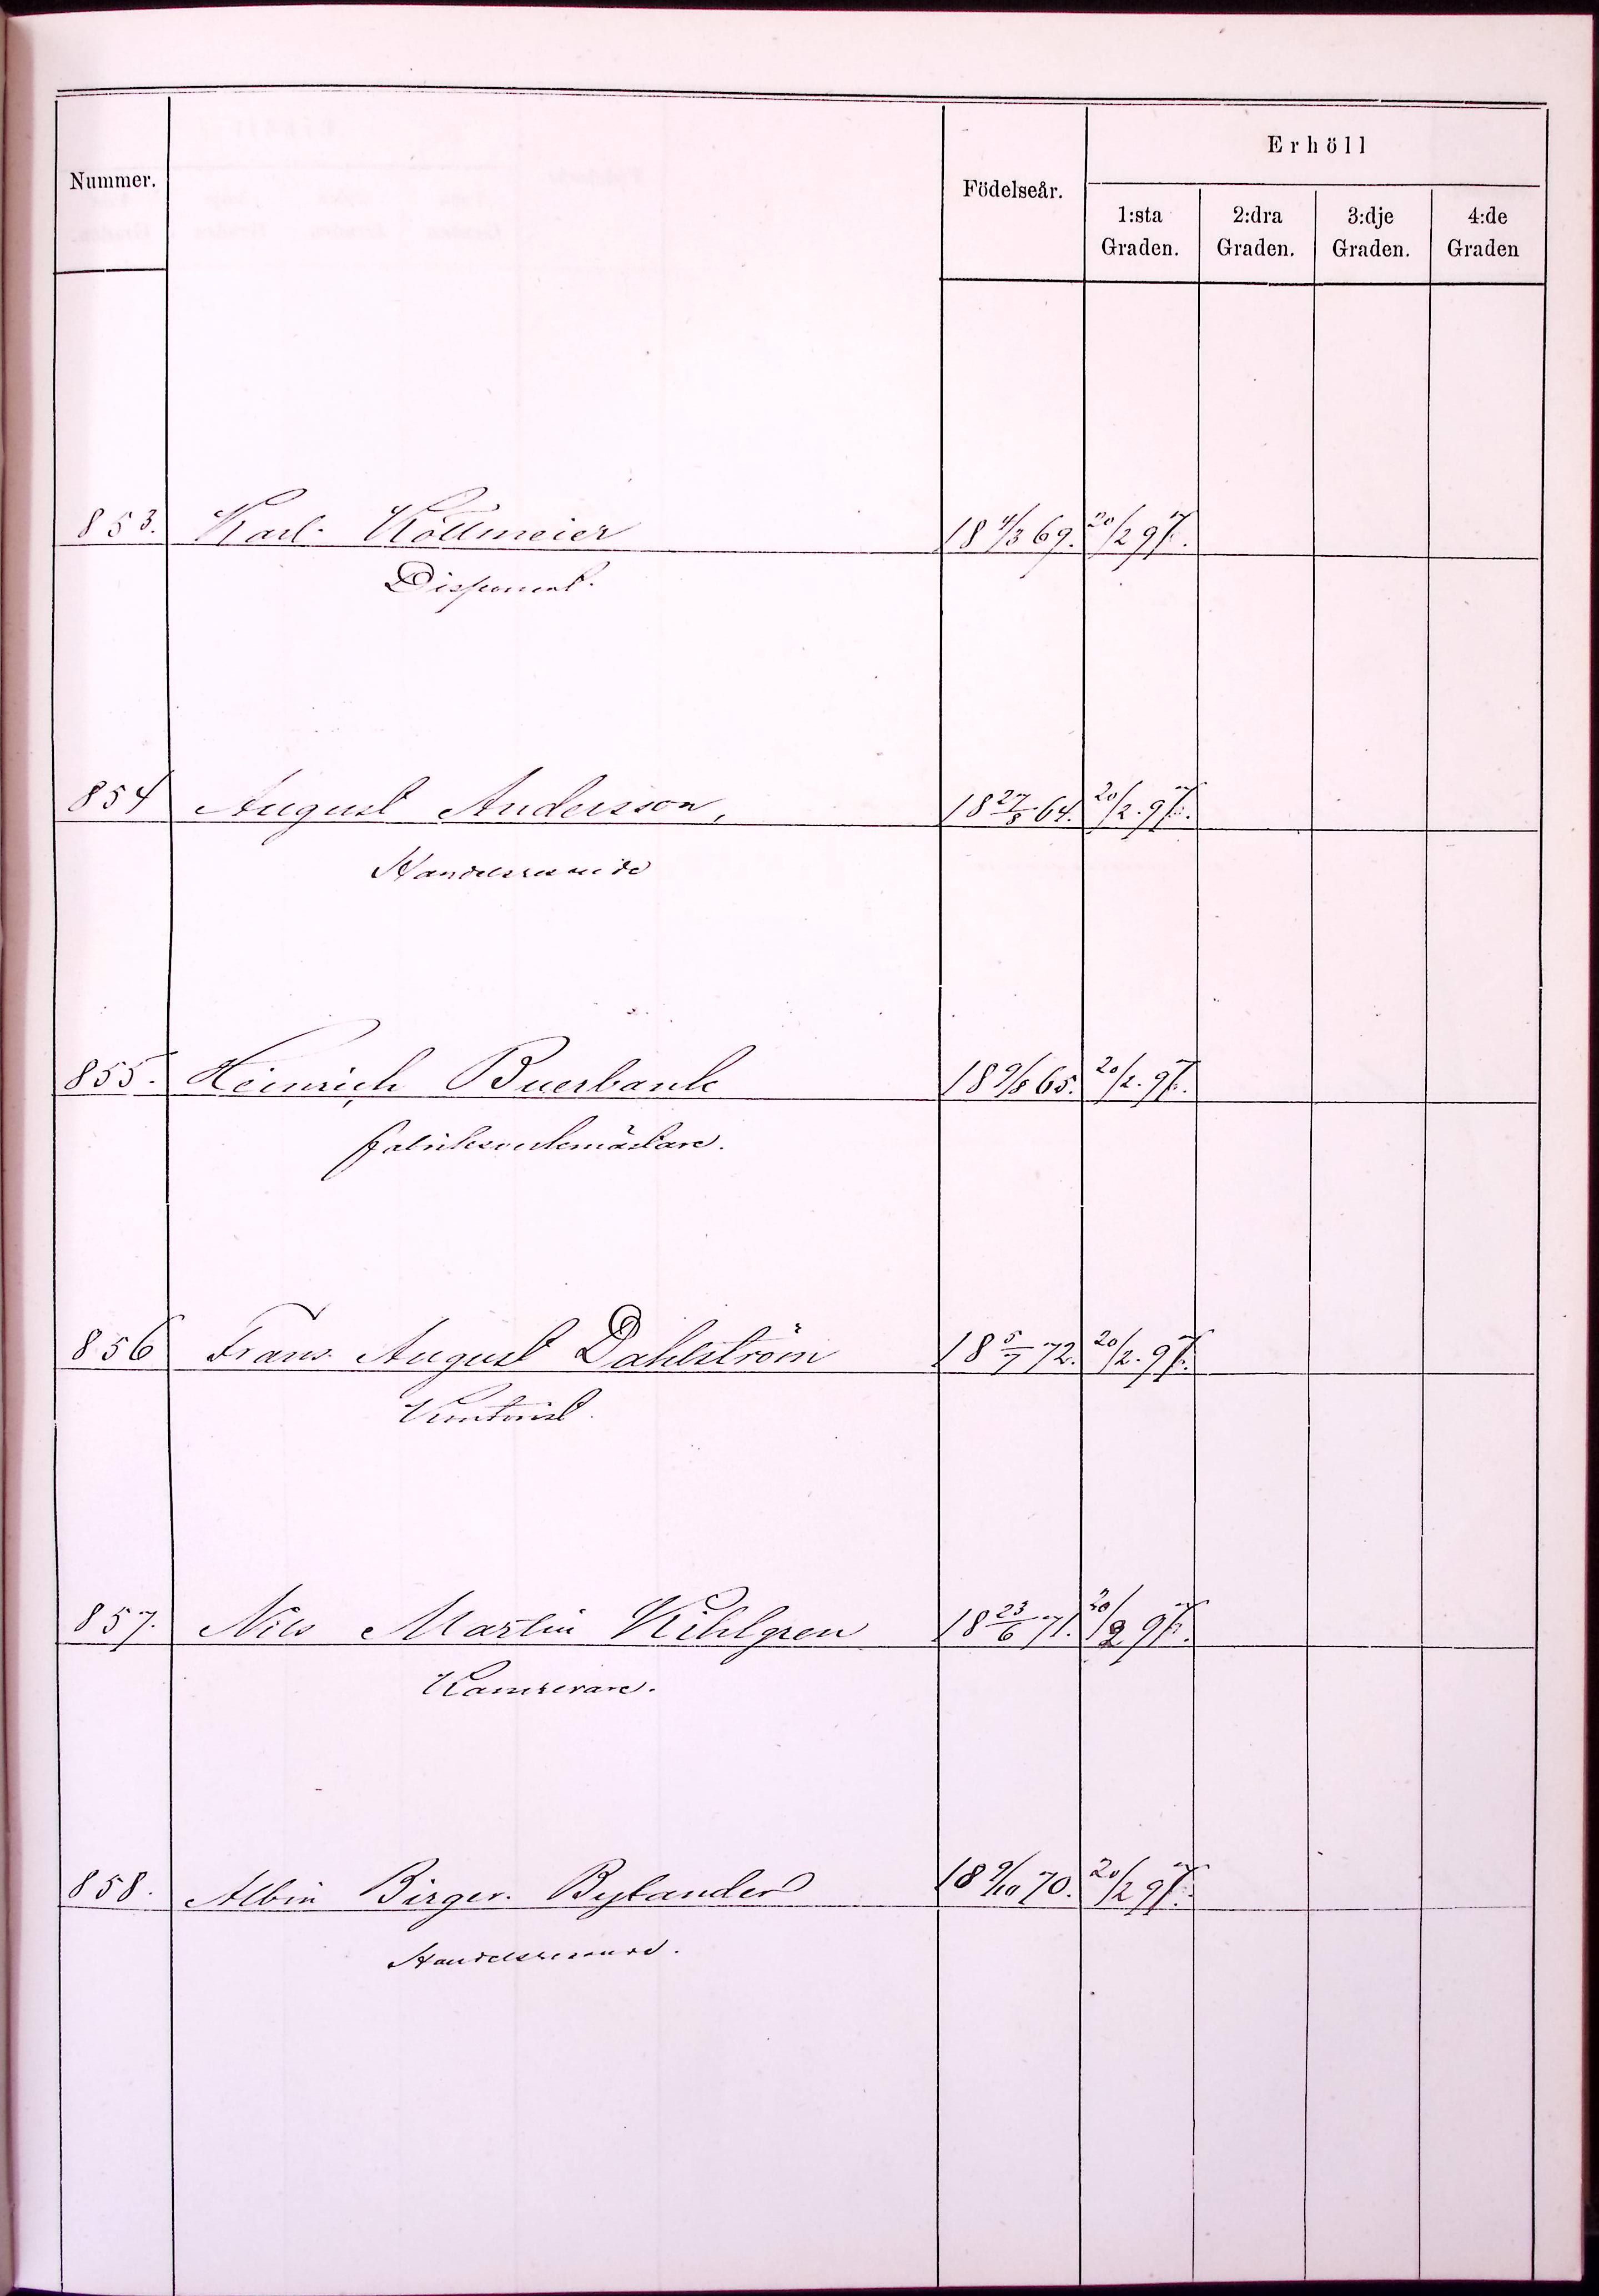 Nummer.
Födelseår.
Erhöll
1:sta Graden.
2:dra Graden.
3:dje Graden.
4:de Graden
853. Karl Köllmeier 18 4/3 69. 20/2 97.
Disponent.
854 August Andersson, 18 27/8 64. 20/2. 97.
Handelsresande
855. Heinrich Buerbank 18 9/8 65. 20/2. 97.
Fabriksverkmästare.
856 Frans August Dahlström 18 5/7 72. 20/2. 97.
Kontorist.
857. Nils Martin Kihlgren 18 23/6 71. 20/2 97.
Kamrerare.
858. Albin Birger Bylander 18 9/10 70. 20/2 97.
Handelsresande.